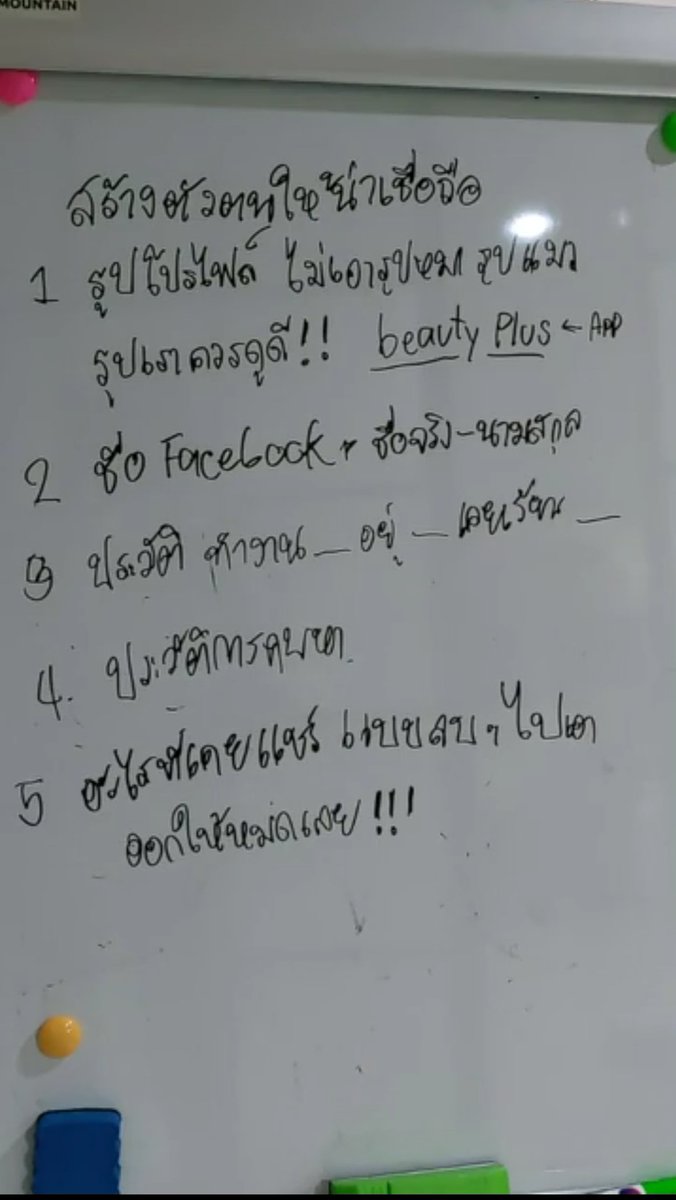 MOUNTAIN
สร้างตัวตนให้น่าเชื่อถือ
1 รูปโปรไฟล์ ไม่เอารูปหมา รูปแมว
รูปเราควรดูดี!! beauty Plus ← APP
2 ชื่อ Facebook + ชื่อจริง-นามสกุล
3 ประวัติ ทำงาน _ อยู่ _ เคยเรียน _
4. ประวัติการคบหา
5 อะไรที่เคยแชร์ แบบลบๆ ไปเอา
ออกให้หมดเลย!!!